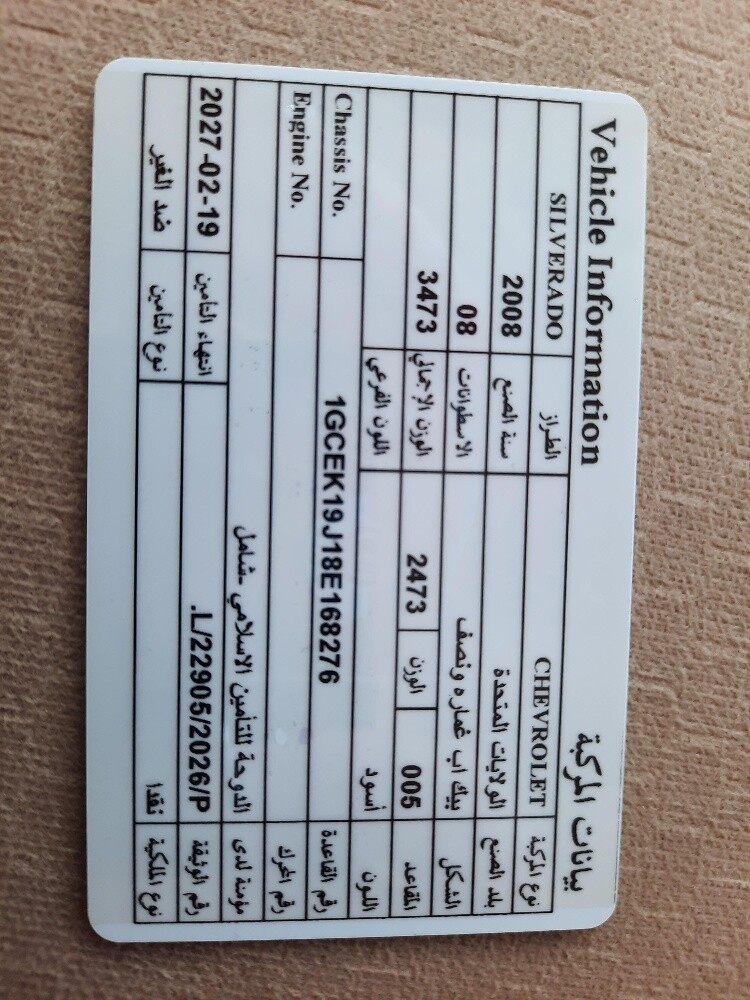 Vehicle Information بيانات المركبة
نوع المركبة CHEVROLET الطراز SILVERADO
بلد الصنع الولايات المتحدة سنة الصنع 2008
الشكل بيك اب غماره ونصف الاسطوانات 08
المقاعد 005 الوزن 2473 الوزن الإجمالي 3473
اللون أسود اللون الفرعي
رقم القاعدة 1GCEK19J18E168276 Chassis No.
رقم المحرك Engine No.
مؤمنة لدى الدوحة للتأمين الاسلامي -شامل
رقم الوثيقة L/22905/2026/P. انتهاء التامين 2027-02-19
نوع الملكية نقدا نوع التامين ضد الغير